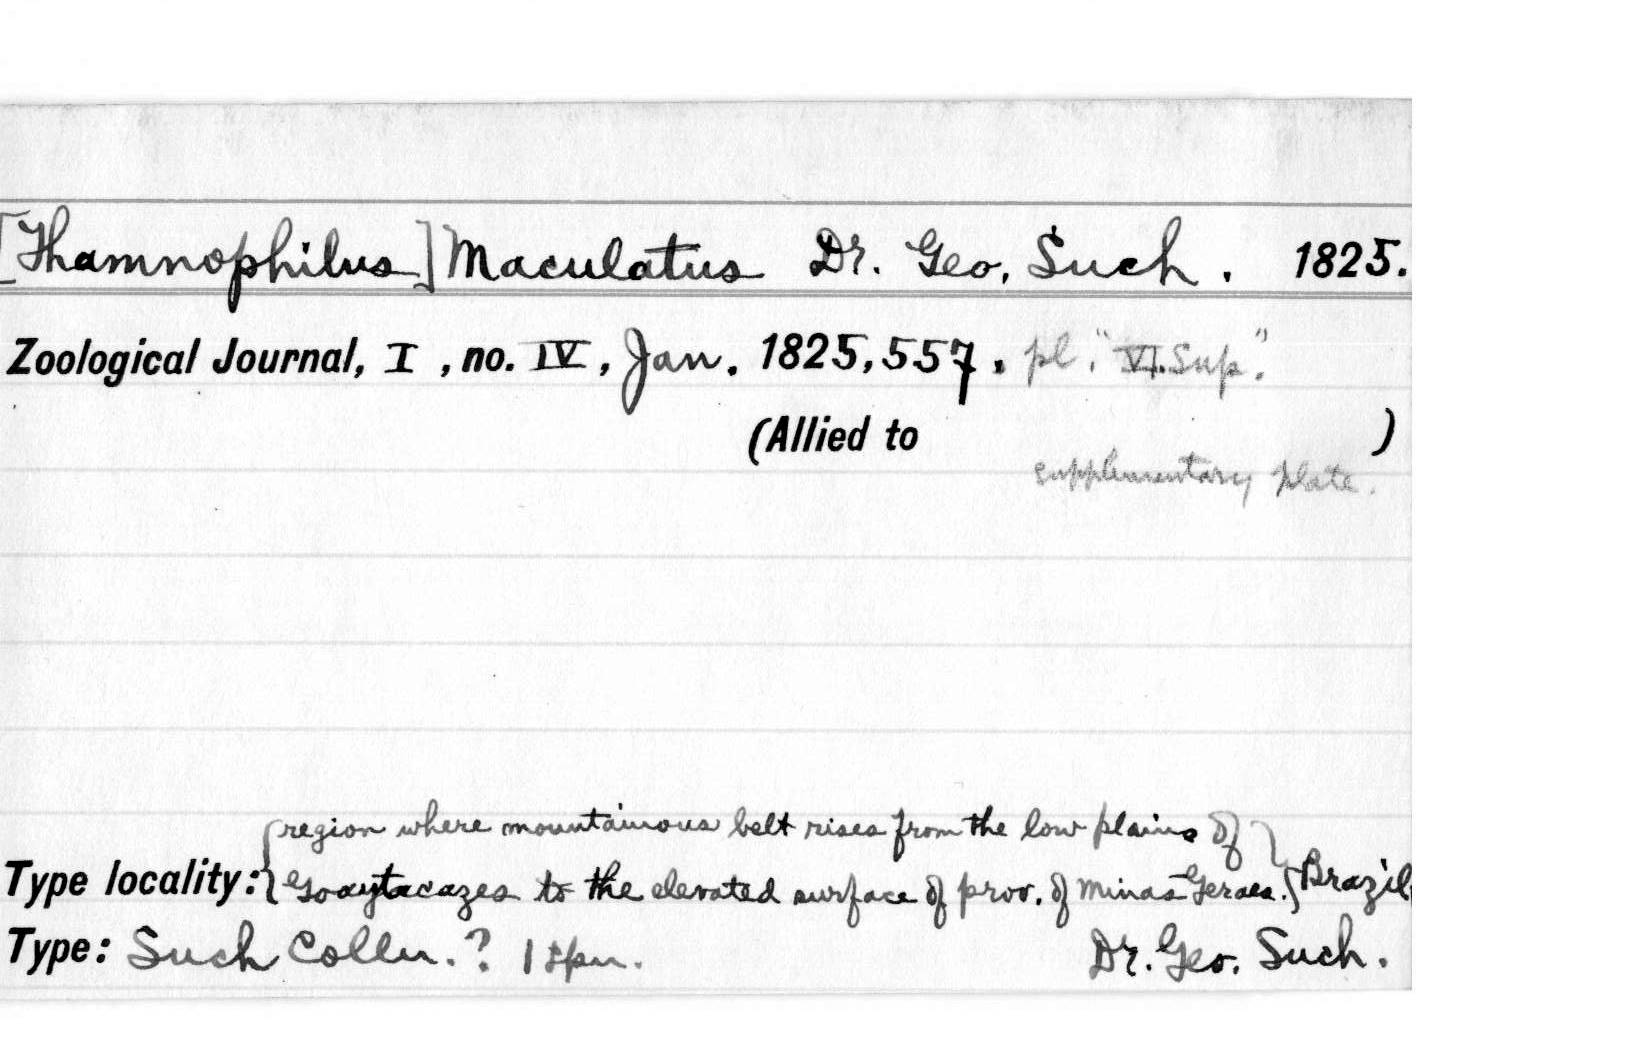 [Thamnophilus] Maculatus Dr. Geo. Such. 1825.
Zoological Journal, I, no. IV, Jan. 1825, 557. pl. "VI. Sup."
(Allied to )
supplementary plate.
region where mountainous belt rises from the low plains of
Type locality: { Goaytacazes to the elevated surface of prov. of Minas Geraes. } Brazil
Type: Such Colln.? 1 spn. Dr. Geo. Such.